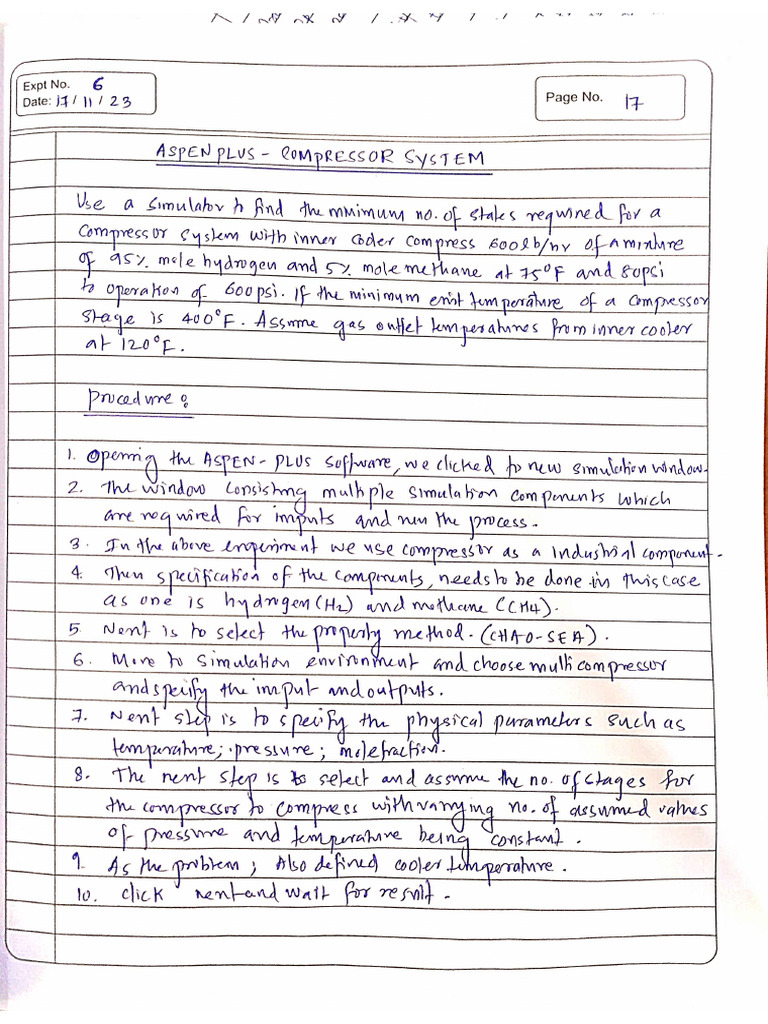 Expt No. 6
Date: 17/11/23
Page No. 17
ASPEN PLUS - COMPRESSOR SYSTEM
Use a simulator to find the minimum no. of states required for a
compressor system with inner cooler compress 600lb/hr of a mixture
of 95% mole hydrogen and 5% mole methane at 75°F and 80psi
to operation of 600psi. If the minimum exit temperature of a compressor
stage is 400°F. Assume gas outlet temperatures from inner cooler
at 120°F.
Procedure:
1. Opening the ASPEN-PLUS software, we clicked to new simulation window.
2. The window consisting multiple simulation components which
are required for inputs and run the process.
3. In the above experiment we use compressor as a Industrial component.
4. Then specification of the components, needs to be done in this case
as one is hydrogen (H2) and methane (CH4).
5. Next is to select the property method. (CHAO-SEA).
6. Move to simulation environment and choose multi compressor
and specify the input and outputs.
7. Next step is to specify the physical parameters such as
temperature; pressure; molefraction.
8. The next step is to select and assume the no. of stages for
the compressor to compress with varying no. of assumed values
of pressure and temperature being constant.
9. As the problem; Also defined cooler temperature.
10. click next and wait for result.